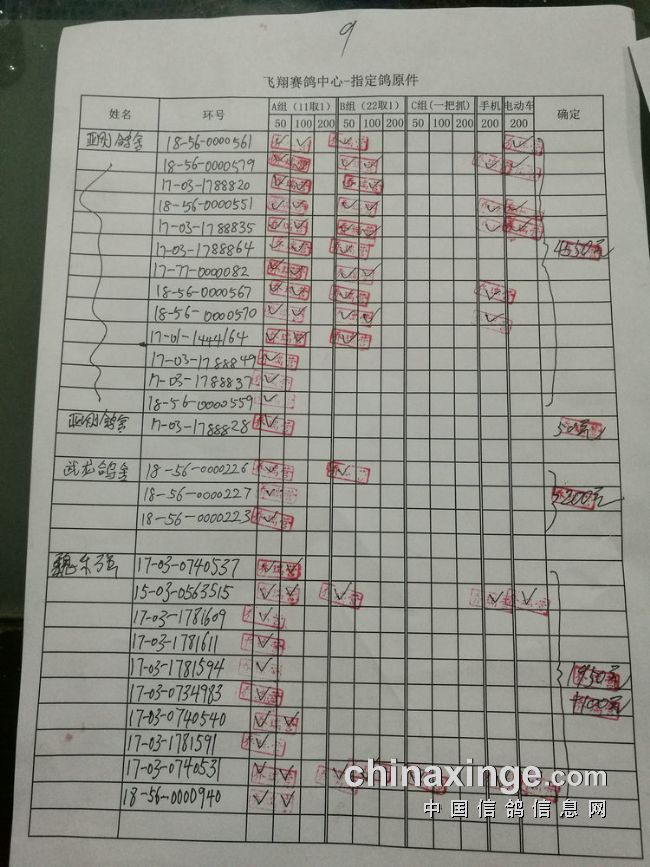 9
飞翔赛鸽中心-指定鸽原件
姓名 环号 A组（11取1） B组（22取1） C组(一把抓) 手机 电动车 确定
50 100 200 50 100 200 50 100 200 200 200
18-56-0000561
18-56-0000579
17-03-1788820
18-56-0000551
17-03-1788835
17-03-1788864 4550元
17-77-0000082
18-56-0000567
18-56-0000570
17-01-1444164
17-03-1788849
17-03-1788837
18-56-0000559
17-03-1788828 50元
武龙鸽舍 18-56-0000226
18-56-0000227 200元
18-56-0000223
魏东强 17-03-0740537
15-03-0563515
17-03-1781609
17-03-1781611
17-03-1781594 1950元
17-03-0734983
17-03-0740540
17-03-1781591
17-03-0740531
18-56-0000940
chinaxinge.com
中国信鸽信息网